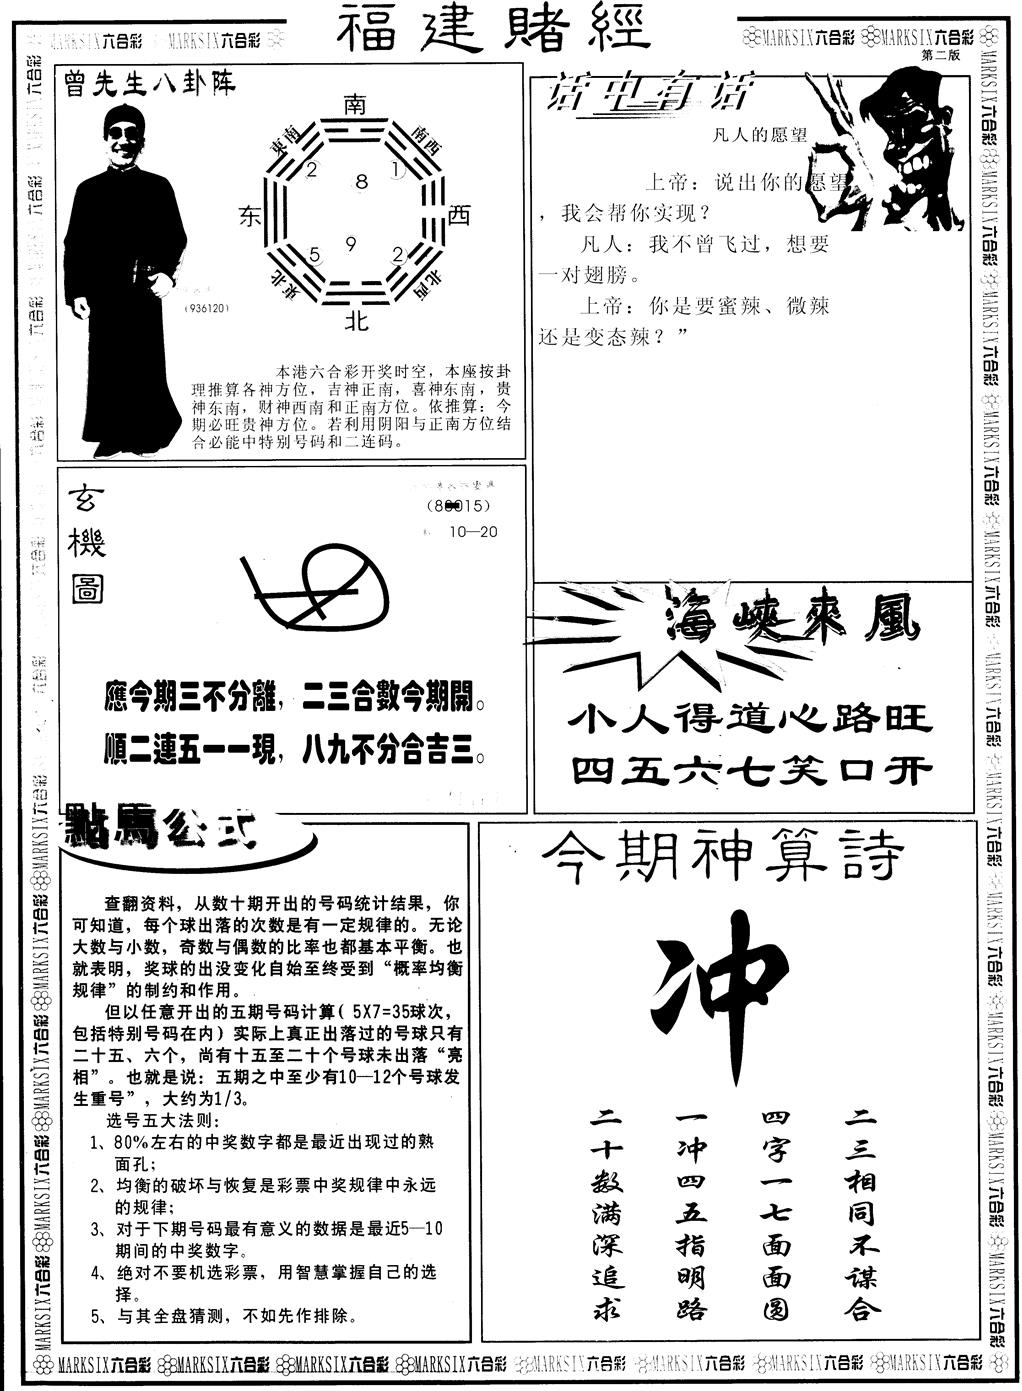 福建賭經
MARKSIX六合彩 MARKSIX六合彩
MARKSIX六合彩 MARKSIX六合彩
第二版
曾先生八卦阵
南
東南
南西
2
8
1
东
西
5
9
2
東北
北西
北
(936120)
本港六合彩开奖时空，本座按卦
理推算各神方位，吉神正南，喜神东南，贵
神东南，财神西南和正南方位。依推算：今
期必旺贵神方位。若利用阴阳与正南方位结
合必能中特别号码和二连码。
话中有话
凡人的愿望
上帝：说出你的愿望
，我会帮你实现？
凡人：我不曾飞过，想要
一对翅膀。
上帝：你是要蜜辣、微辣
还是变态辣？”
玄機圖
10—20
應今期三不分離，二三合數今期開。
順二連五一一現，八九不分合吉三。
海峽來風
小人得道心路旺
四五六七笑口开
點馬公式
查翻资料，从数十期开出的号码统计结果，你
可知道，每个球出落的次数是有一定规律的。无论
大数与小数，奇数与偶数的比率也都基本平衡。也
就表明，奖球的出没变化自始至终受到“概率均衡
规律”的制约和作用。
但以任意开出的五期号码计算( 5X7=35球次，
包括特别号码在内）实际上真正出落过的号球只有
二十五、六个，尚有十五至二十个号球未出落“亮
相”。也就是说：五期之中至少有10—12个号球发
生重号”，大约为1/3。
选号五大法则：
1、80%左右的中奖数字都是最近出现过的熟
面孔；
2、均衡的破坏与恢复是彩票中奖规律中永远
的规律；
3、对于下期号码最有意义的数据是最近5—10
期间的中奖数字。
4、绝对不要机选彩票，用智慧掌握自己的选
择。
5、与其全盘猜测，不如先作排除。
今期神算詩
冲
二三相同不谋合
四字一七面面圆
一冲四五指明路
二十数满深追求
MARKSIX六合彩 MARKSIX六合彩 MARKSIX六合彩 MARKSIX六合彩 MARKSIX六合彩 MARKSIX六合彩 MARKSIX六合彩 MARKSIX六合彩